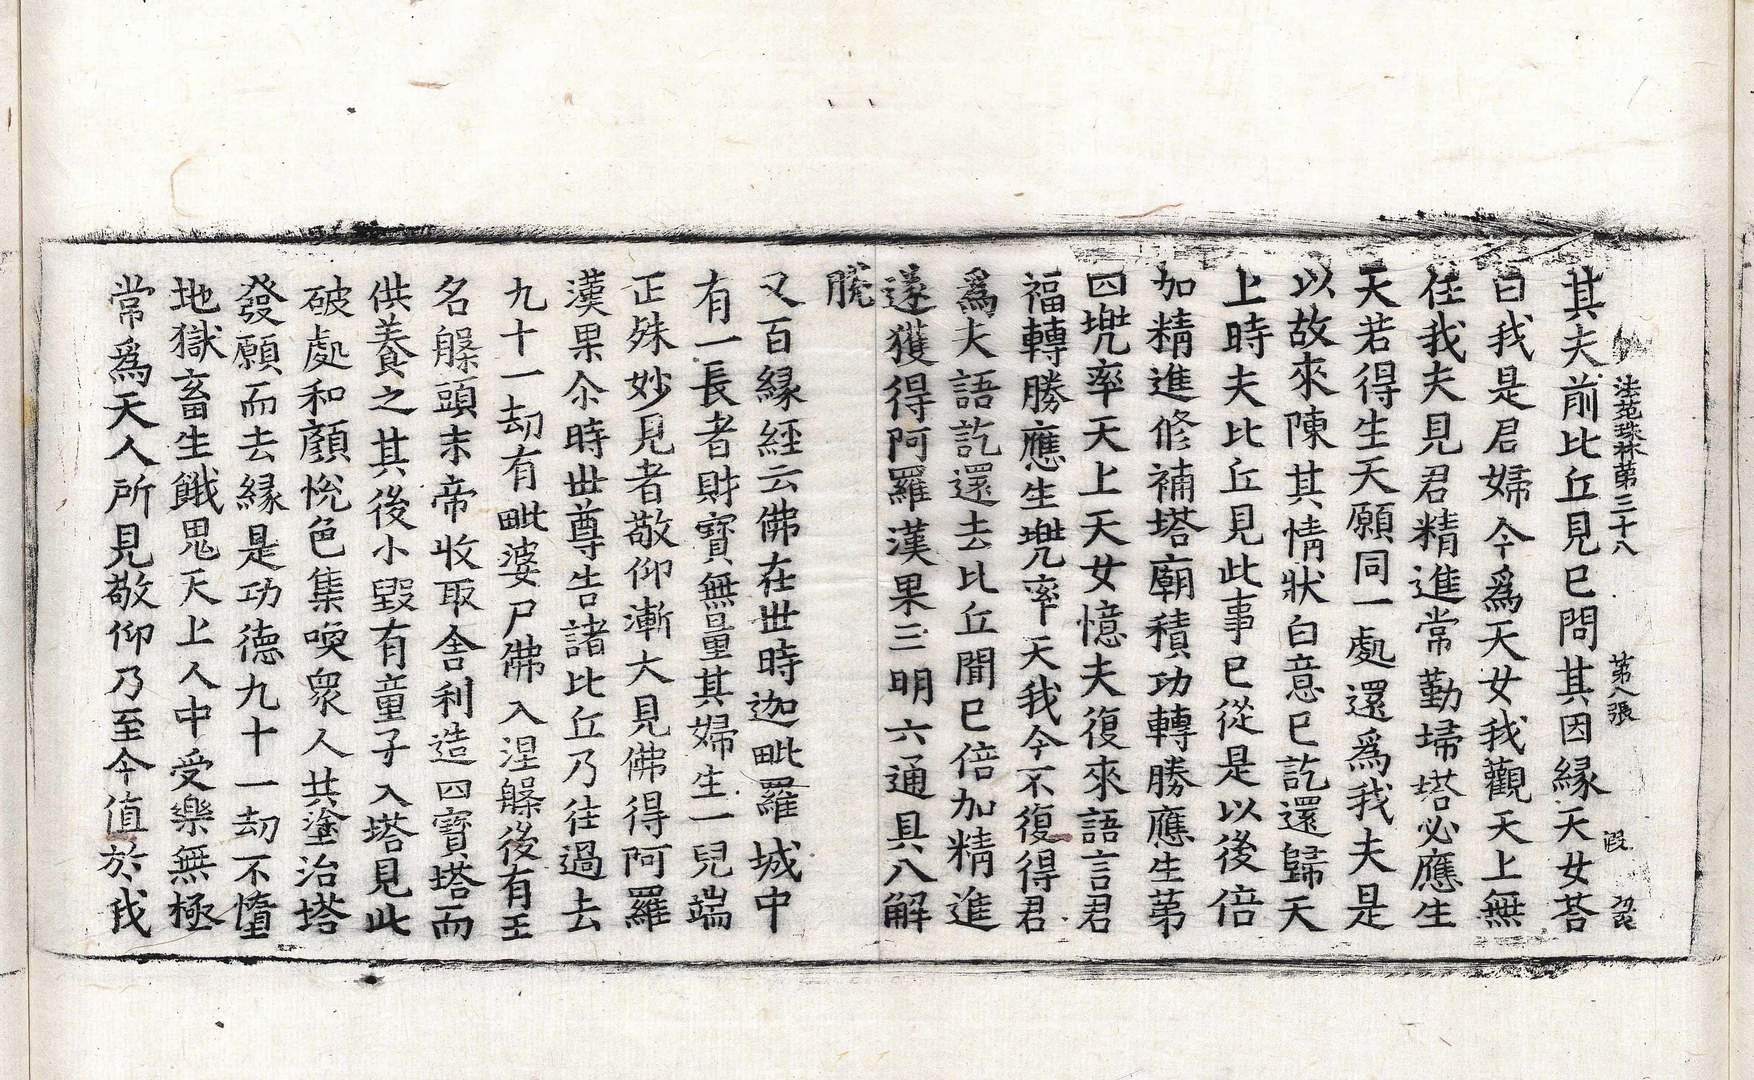 法苑珠林第三十八 第八張 假
其夫前比丘見已問其因緣天女荅
曰我是君婦今爲天女我觀天上無
任我夫見君精進常勤埽塔必應生
天若得生天願同一處還爲我夫是
以故來陳其情狀白意已訖還歸天
上時夫比丘見此事已從是以後倍
加精進修補塔廟積功轉勝應生第
四兠率天上天女憶夫復來語言君
福轉勝應生兠率天我今不復得君
爲夫語訖還去比丘聞已倍加精進
遂獲得阿羅漢果三明六通具八解
脫
又百緣經云佛在世時迦毗羅城中
有一長者財寶無量其婦生一兒端
正殊妙見者敬仰漸大見佛得阿羅
漢果尒時世尊告諸比丘乃往過去
九十一劫有毗婆尸佛入涅槃後有王
名槃頭末帝收取舍利造四寶塔而
供養之其後小毀有童子入塔見此
破處和顏悅色集喚衆人共塗治塔
發願而去緣是功德九十一劫不墮
地獄畜生餓鬼天上人中受樂無極
常爲天人所見敬仰乃至今值於我